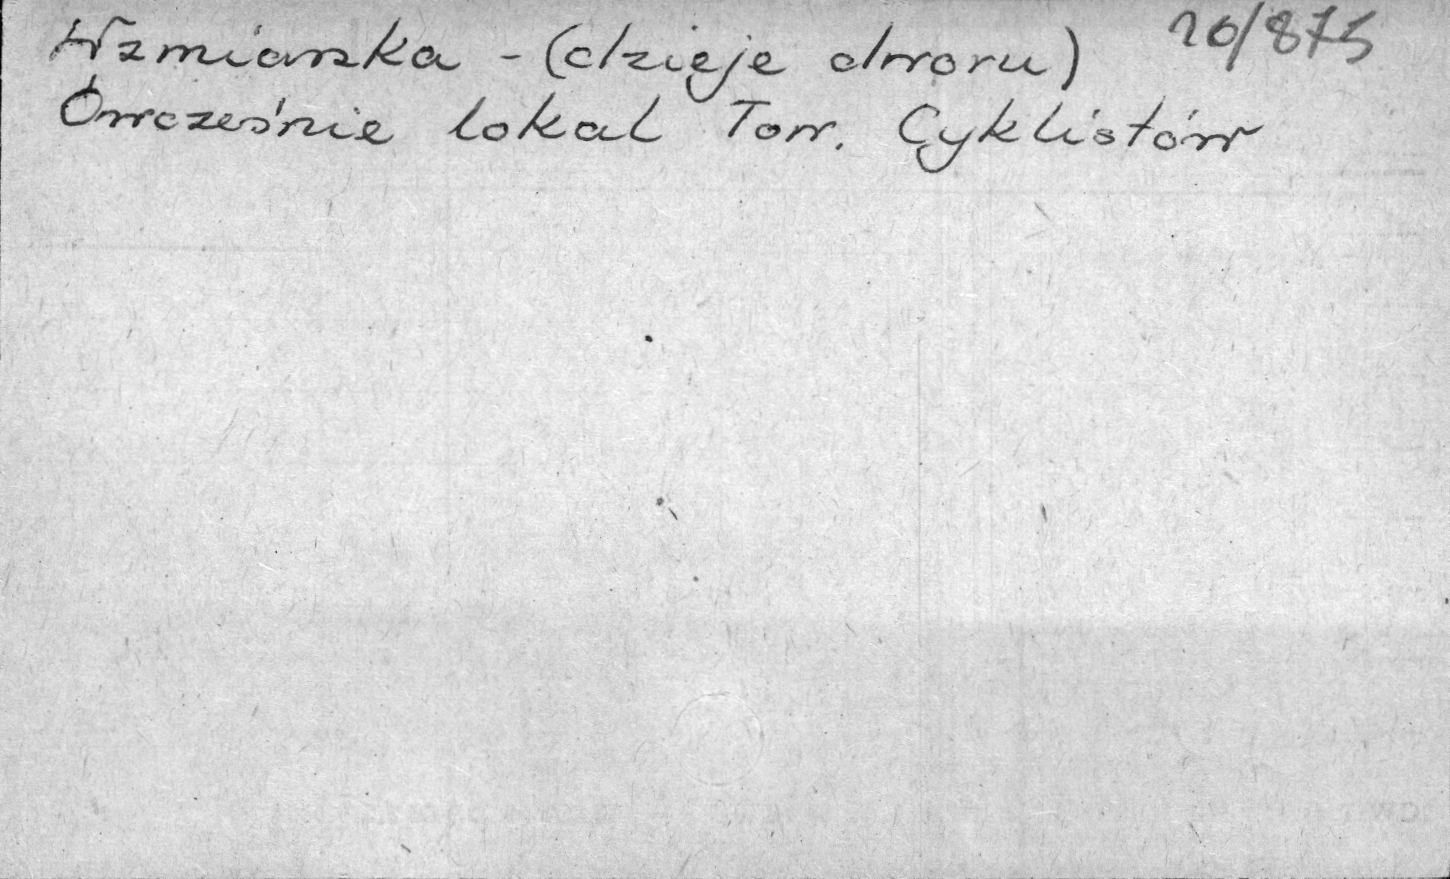 Wzmianka - (dzieje dworu) 20/875
Ówcześnie lokal Tow. Cyklistów